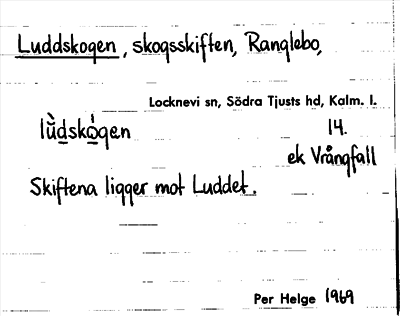 Luddskogen, skogsskiften, Ranglebo,
Locknevi sn, Södra Tjusts hd, Kalm. l.
lù̱dskò̱gen 14.
ek Vrångfall
Skiftena ligger mot Luddet.
Per Helge 1969